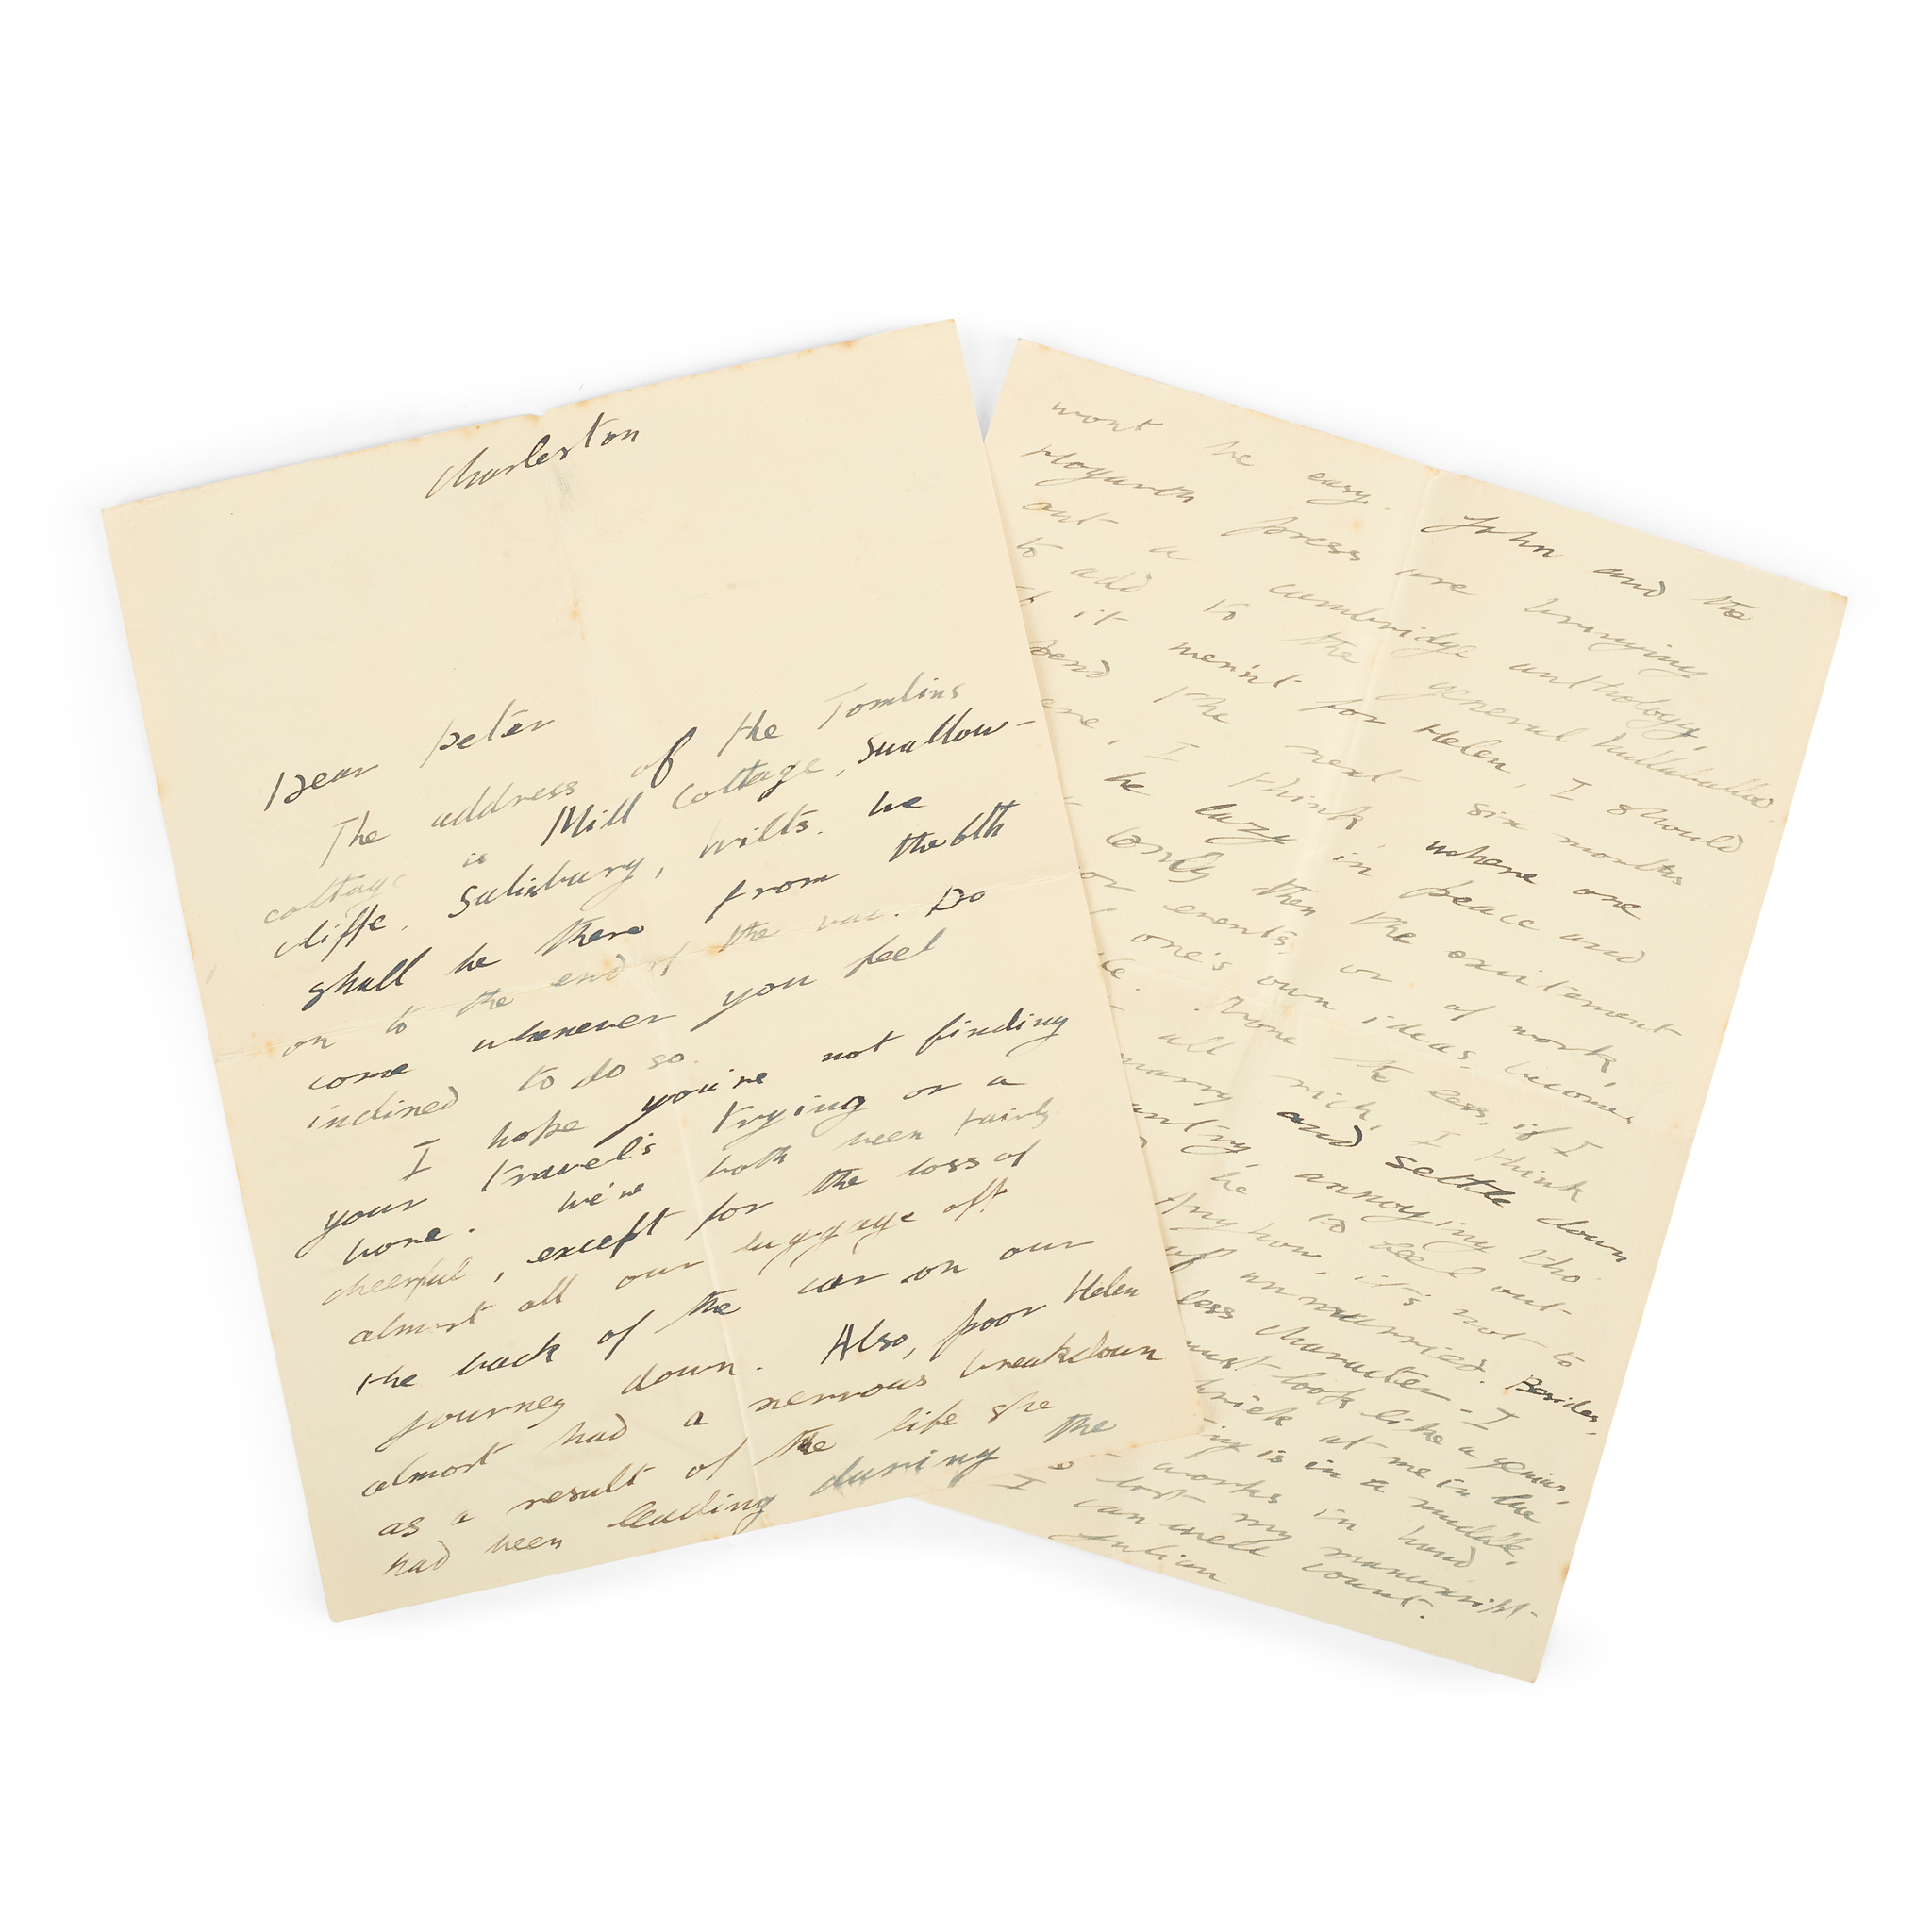 Charleston
Dear Peter
The address of the Tomlins
cottage is Mill Cottage, Swallow-
cliffe, Salisbury, Wilts. We
shall be there from the 6th
on to the end of the vac. Do
come whenever you feel
inclined to do so.
I hope you're not finding
your travels trying or a
bore. We've both been fairly
cheerful, except for the loss of
almost all our luggage off
the back of the car on our
journey down. Also, poor Helen
almost had a nervous breakdown
as a result of the life she
had been leading during the
wont be easy. John and the
Hogarth press are bringing
out a cambridge anthology,
to add to the general hullaballoo.
If it weren't for Helen, I should
spend the next six months
, I think where one
be lazy in peace and
only then the excitement
or events, or of work,
one's own ideas, becomes
None the less, if I
all rich, I think
marry and settle down
country, annoying tho
be to feel out-
Anyhow, it's not to
unmarried. Besides,
less character - I
must look like a genius,
brick at me in the
is in a muddle,
works in hand
lost my manuscript-
I can well count.
Julian